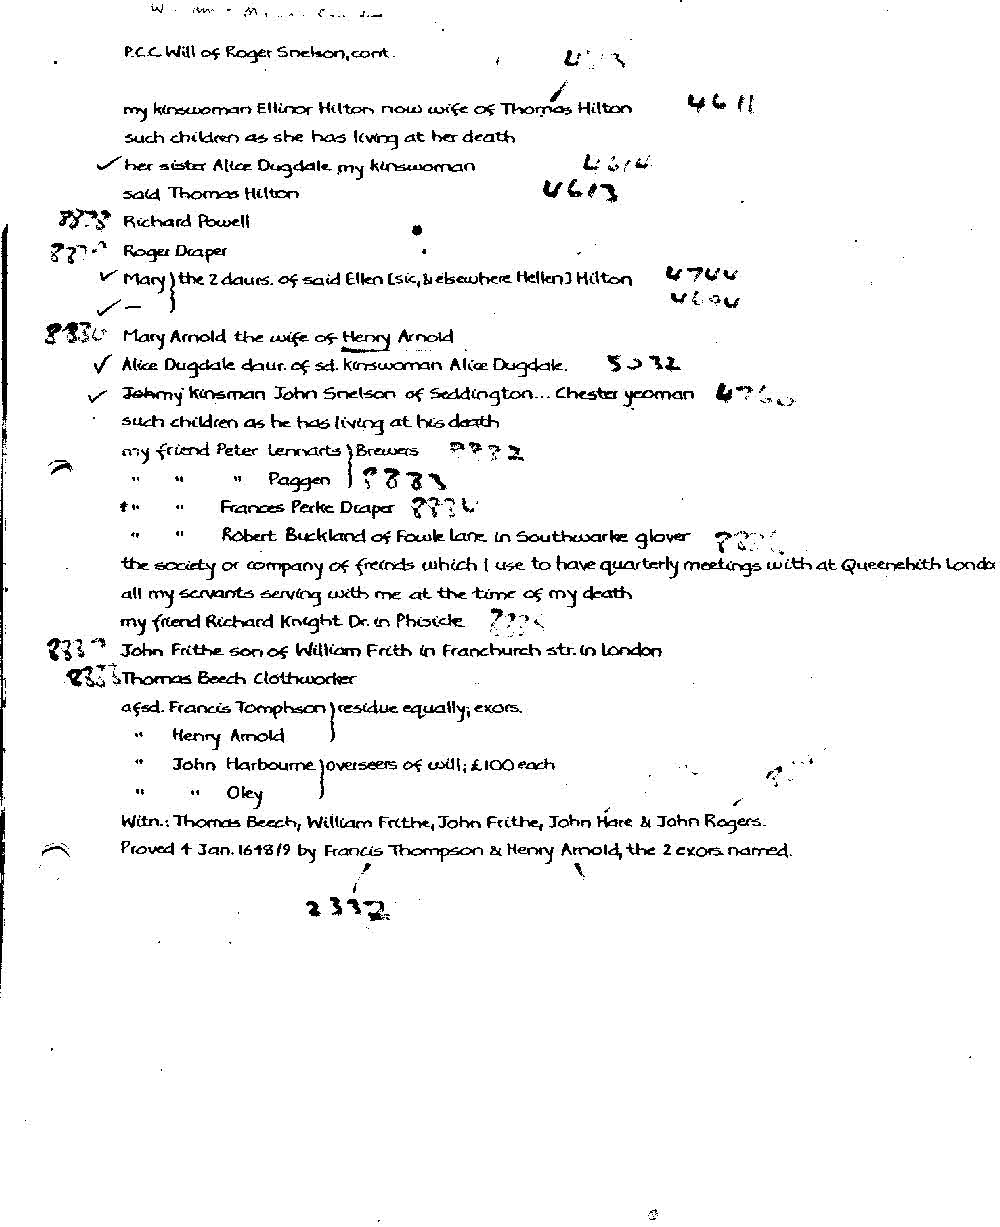 P.C.C. Will of Roger Snelson, cont.
my kinswoman Ellinor Hilton now wife of Thomas Hilton 4611
such children as she has living at her death
✓ her sister Alice Dugdale my kinswoman 4614
said Thomas Hilton 4613
Richard Powell
Roger Draper
✓ Mary } the 2 daurs. of said Ellen [sic, & elsewhere Hellen] Hilton 4744
✓ — 4694
8830 Mary Arnold the wife of Henry Arnold
✓ Alice Dugdale daur. of sd. kinswoman Alice Dugdale. 5032
✓ Johmy kinsman John Snelson of Seddington... Chester yeoman 4760
such children as he has living at his death
my friend Peter Lennarts } Brewers 8832
" " " Paggen } 8883
" " Frances Perke Draper
" " Robert Buckland of Fowle Lane in Southwarke glover
the society or company of freinds which I use to have quarterly meetings with at Queenehith Londo
all my servants serving with me at the time of my death
my friend Richard Knight Dr. in Phisicke
John Frithe son of William Frith in Franchurch str. in London
Thomas Beech Clothworker
afsd. Francis Tomphson } residue equally; exors.
" Henry Arnold
" John Harbourne } overseers of will; £100 each
" " Oley
Witn.: Thomas Beech, William Frithe, John Frithe, John Hare & John Rogers.
Proved 4 Jan. 1648/9 by Francis Thompson & Henry Arnold, the 2 exors. named.
2332